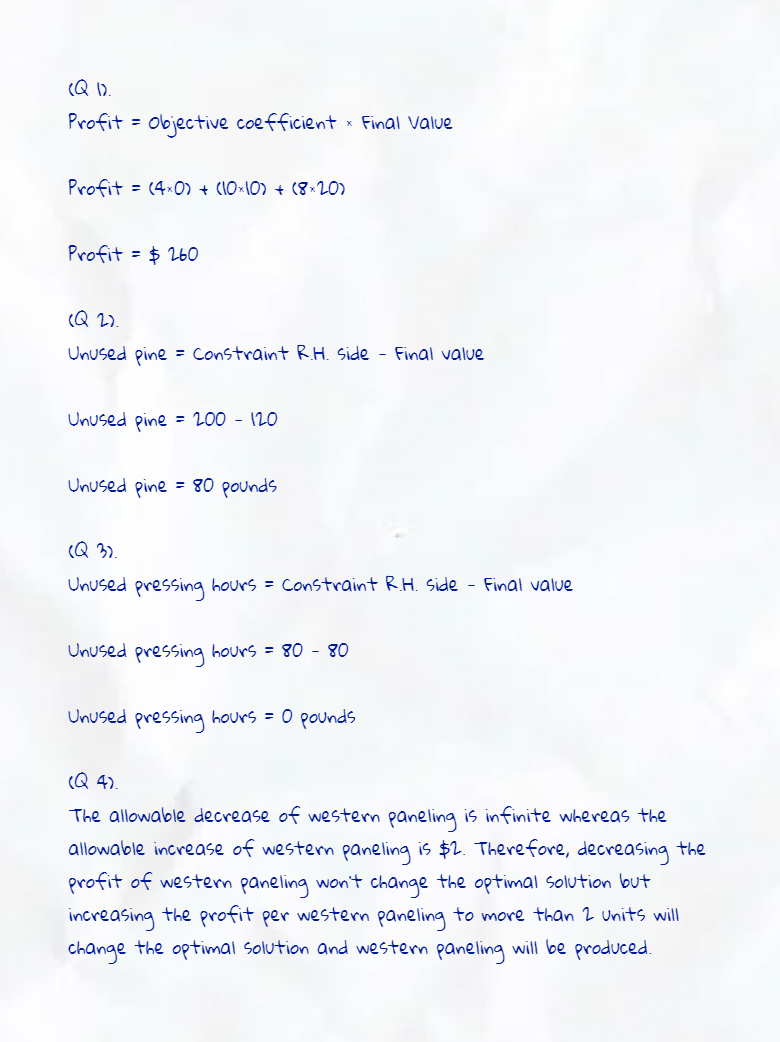 (Q 1).
Profit = Objective coefficient × Final Value
Profit = (4×0) + (10×10) + (8×20)
Profit = $ 260
(Q 2).
Unused pine = Constraint R.H. side - Final value
Unused pine = 200 - 120
Unused pine = 80 pounds
(Q 3).
Unused pressing hours = Constraint R.H. side - Final value
Unused pressing hours = 80 - 80
Unused pressing hours = 0 pounds
(Q 4).
The allowable decrease of western paneling is infinite whereas the
allowable increase of western paneling is $2. Therefore, decreasing the
profit of western paneling won't change the optimal solution but
increasing the profit per western paneling to more than 2 units will
change the optimal solution and western paneling will be produced.